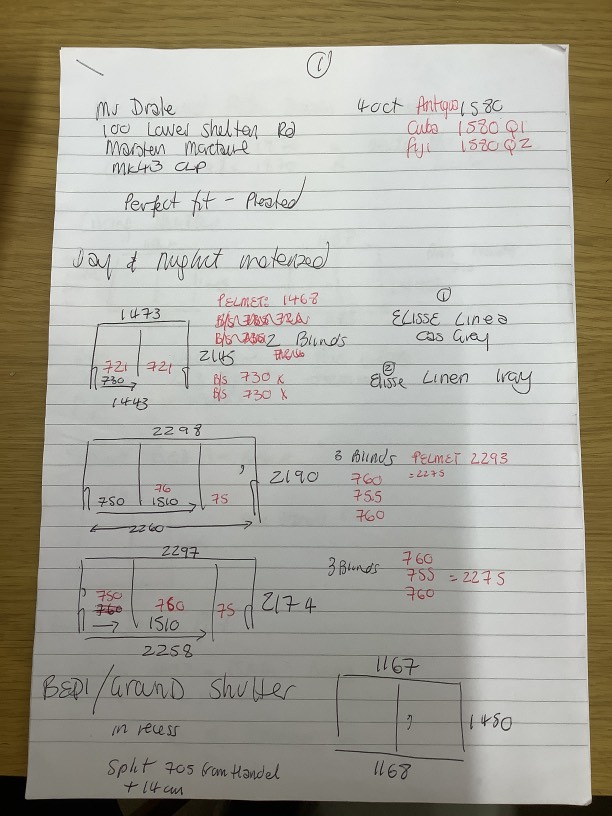 1
Mr Drale
4 oct Antiqua 1580
100 Lower Shelton Rd
Cuba 1580 Q1
Marsten Mortaure
Fiji 1580 Q2
MK43
Perfect fit - Pleated
Day & Nught motorized
PELMET: 1468
1
1473
ELISSE Linea
2 Blinds
Cos Grey
2145
721 721
2
B/S 730 X
Elisse Linen Iray
730
B/S 730 X
1443
2298
3 Blinds PELMET 2293
760 = 2275
2190
755
76
760
750 1510 75
2260
2297
3 Blinds 760
755 = 2275
760
750
760 760 75
2174
1510
2258
BED1/Grand Shutter
1167
in recess
1450
Split 705 from Handel
1168
+ 14cm